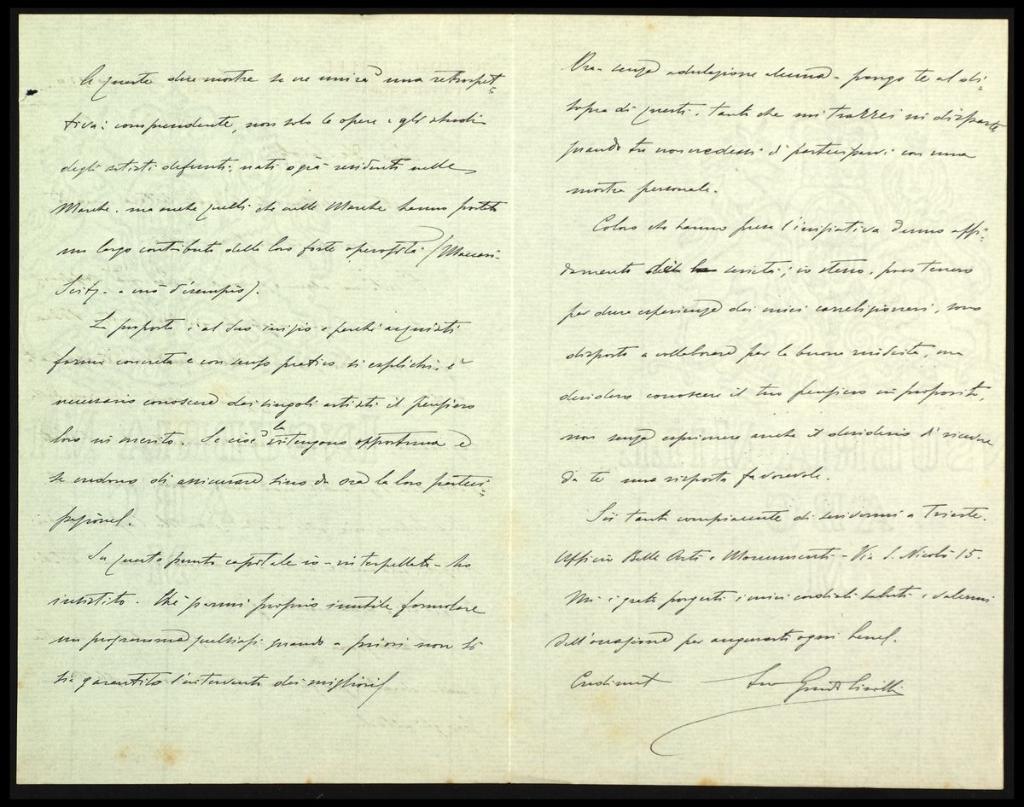 A queste due mostre se ne unirà una retrospet-
tiva: comprendente, non solo le opere e gli studi
degli artisti defunti, nati o già residenti nelle
Marche, ma anche quelli che nelle Marche hanno portato
un largo contributo della loro forte operosità (Maccari-
Seitz, a mò d'esempio).
La proposta è al suo inizio e perché acquisti
forma concreta e con senso pratico si esplichi, è
necessario conoscere dai singoli artisti il pensiero
loro in merito. Se cioè la ritengono opportuna e
se credono di assicurare sino da ora la loro parteci-
pazione.
Su questo punto capitale io - interpellato - ho
insistito. Chè parmi proprio inutile formulare
un programma qualsiasi quando a priori non si
sia garantito l'intervento dei migliori.
Ora - senza adulazione alcuna - pongo te al di-
sopra di questi, tanto che mi trarrei in disparte
quando tu non credessi di parteciparvi con una
mostra personale.
Coloro che hanno preso l'iniziativa danno affi-
damento di serietà; io stesso, poco tenero
per dura esperienza dei miei correligionari, sono
disposto a collaborare per la buona riuscita, ma
desidero conoscere il tuo pensiero in proposito,
non senza esprimere anche il desiderio di ricevere
da te una risposta favorevole.
Sii tanto compiacente di scrivermi a Trieste.
Ufficio Belle Arti e Monumenti - Via S. Nicolò 15.
Mi è grato porgerti i miei cordiali saluti e valermi
dell'occasione per augurarti ogni bene.
Credimi tuo Guido Cirilli